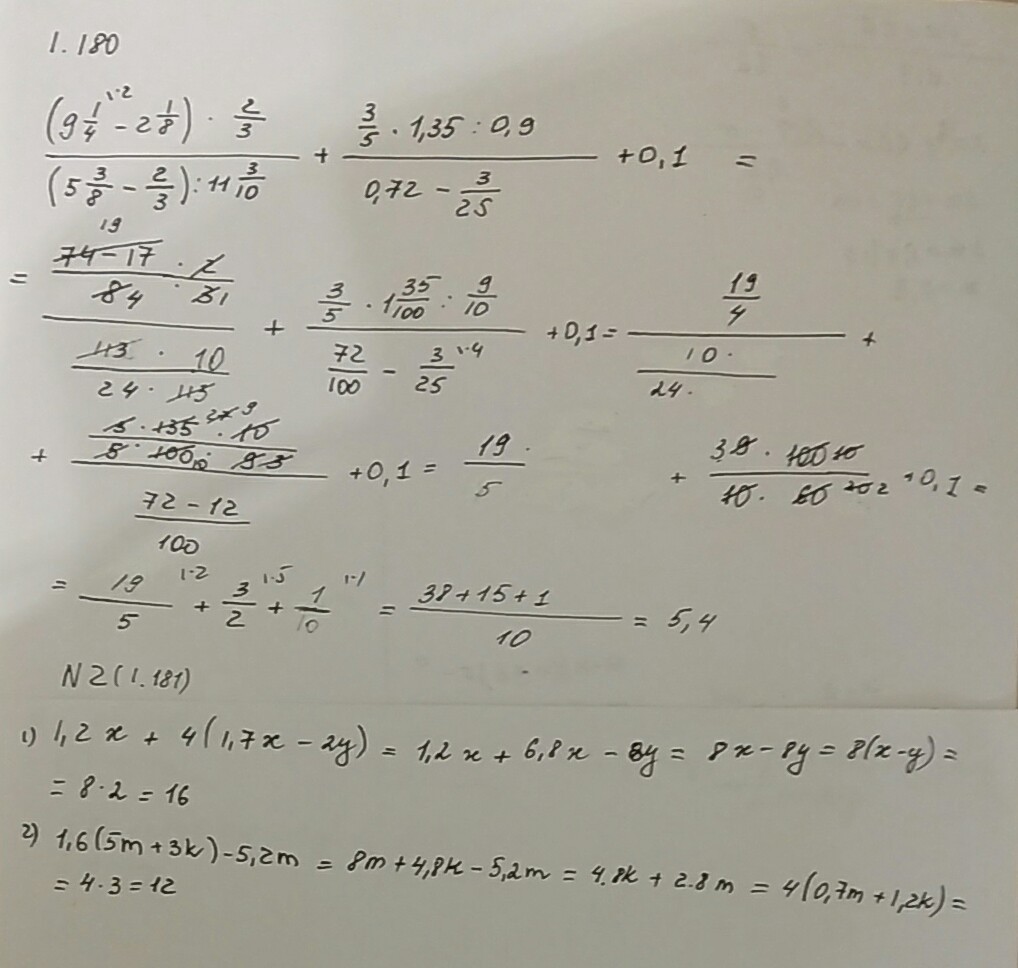 1.180
(9 1/4 ^1·2 - 2 1/8) · 2/3 / (5 3/8 - 2/3) : 11 3/10 + 3/5 · 1,35 : 0,9 / 0,72 - 3/25 + 0,1 =
19
= 74-17 · 2 / 84 · 31 / 113 · 10 / 24 · 113 + 3/5 · 1 35/100 : 9/10 / 72/100 - 3/25 ^1·4 + 0,1 = 19/4 / 10· / 24· +
+ 3 · 135 27 9 · 10 / 5 · 100 10 · 9 3 / 72-12 / 100 + 0,1 = 19· / 5 + 3,9 · 100 10 / 10 · 60 20 2 + 0,1 =
= 19/5 ^1·2 + 3/2 ^1·5 + 1/10 ^1·1 = 38+15+1 / 10 = 5,4
N2(1.181)
1) 1,2x + 4(1,7x - 2y) = 1,2x + 6,8x - 8y = 8x - 8y = 8(x-y) =
= 8·2 = 16
2) 1,6(5m+3k)-5,2m = 8m+4,8k-5,2m = 4.8k + 2.8m = 4(0,7m+1,2k) =
= 4·3=12